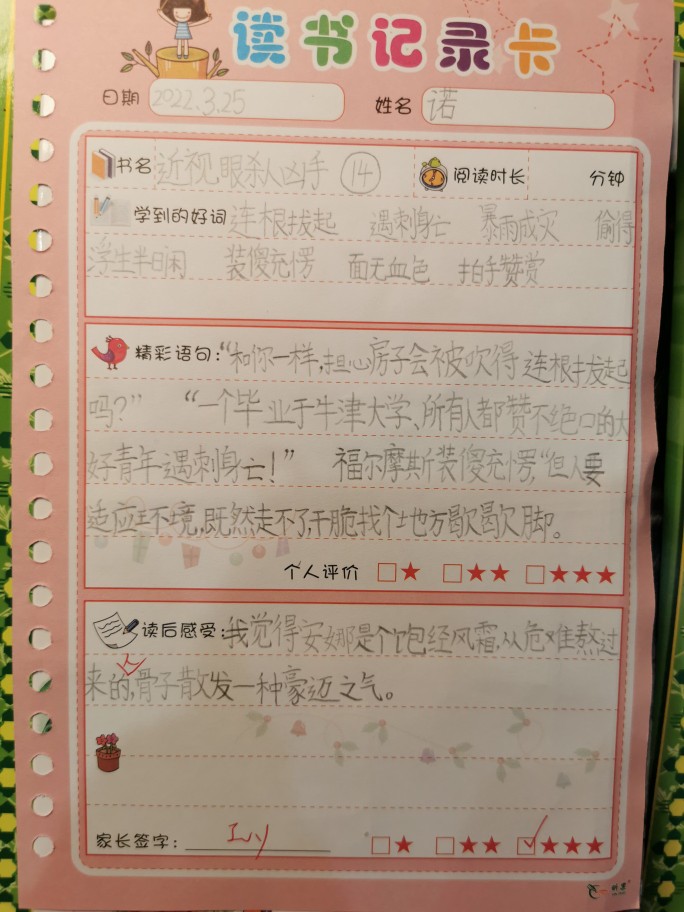 读书记录卡
日期 2022.3.25 姓名 诺
书名 近视眼杀人凶手 14 阅读时长 分钟
学到的好词 连根拔起 遇刺身亡 暴雨成灾 偷得
浮生半日闲 装傻充愣 面无血色 拍手赞赏
精彩语句："和你一样,担心房子会被吹得连根拔起
吗?" "一个毕业于牛津大学、所有人都赞不绝口的大
好青年遇刺身亡!" 福尔摩斯装傻充愣,"但人要
适应环境,既然走不了,干脆找个地方歇歇脚。
个人评价 □★ □★★ □★★★
读后感受：我觉得安娜是个饱经风霜,从危难熬过
来的,骨子散发一种豪迈之气。
家长签字： Ivy □★ □★★ ☑★★★